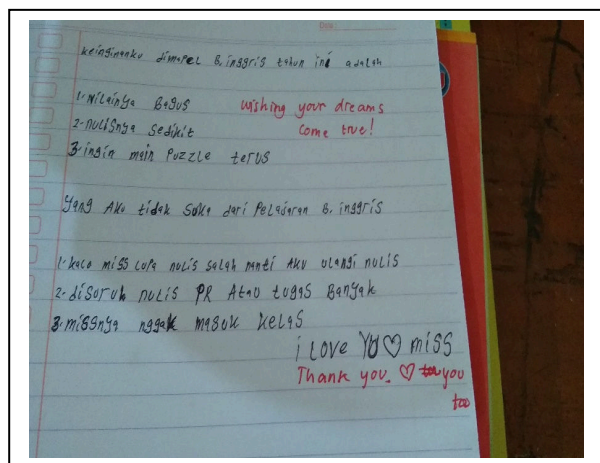 keinginanku dimapel B. inggris tahun ini adalah
1. Nilainya Bagus
wishing your dreams
2. nulisnya sedikit
come true!
3. ingin main Puzzle terus
Yang Aku tidak suka dari Pelajaran B. inggris
1. kalo miss lupa nulis salah nanti Aku ulangi nulis
2. disuruh nulis PR Atau tugas Banyak
3. missnya nggak masuk kelas
i Love YU ♡ miss
Thank you. ♡ you
too